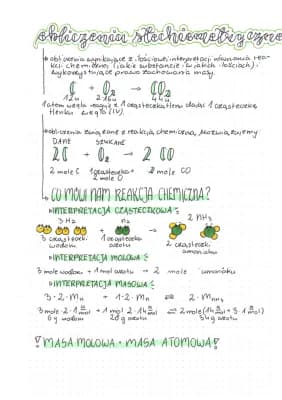 obliczenia stechiometryczne
obliczenia wynikające z ilościowej interpretacji równania rea-
kcji chemicznej (jakie substancje i w jakich ilościach) i
wykorzystujące prawo zachowania masy
C + O₂ → CO₂
12u 2·16u 44u
1 atom węgla reaguje z 1 cząsteczką tlenu dając 1 cząsteczkę
tlenku węgla (IV).
obliczenia związane z reakcją chemiczną rozwiązujemy
DANE SZUKANE
2C + O₂ → 2CO
2 mole C 1 cząsteczka 2 mole CO
2 mole O
CO MÓWI NAM REAKCJA CHEMICZNA?
INTERPRETACJA CZĄSTECZKOWA:
3H₂ N₂ 2NH₃
3 cząsteczki 1 cząsteczka 2 cząsteczki
wodoru azotu amoniaku
INTERPRETACJA MOLOWA:
3 mole wodoru + 1 mol azotu → 2 mole amoniaku
INTERPRETACJA MASOWA:
3·2·Mн + 1·2·Mn ⇌ 2·Mnн₃
6g wodoru 28g azotu 34g amoniaku
! MASA MOLOWA = MASA ATOMOWA !